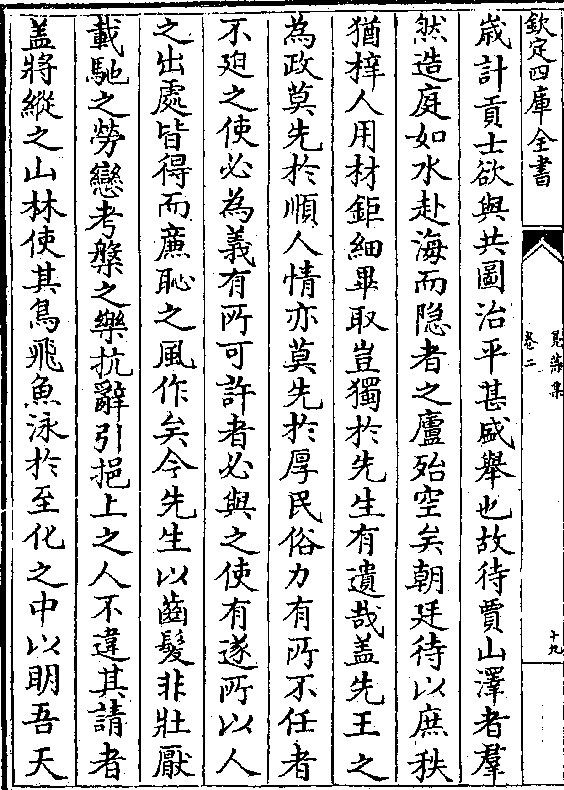 欽定四庫全書
鳧藻集
卷二
十九
歲計貢士欲與共圖治平甚盛舉也故待賈山澤者羣
然造庭如水赴海而隠者之廬殆空矣朝廷待以庶秩
猶梓人用材鉅細畢取豈獨於先生有遺哉盖先王之
為政莫先於順人情亦莫先於厚民俗力有所不任者
不廹之使必為義有所可許者必與之使有遂所以人
之出處皆得而亷恥之風作矣今先生以齒髮非壯厭
載馳之勞戀考槃之樂抗辭引挹上之人不違其請者
盖將縱之山林使其鳥飛魚泳於至化之中以明吾天